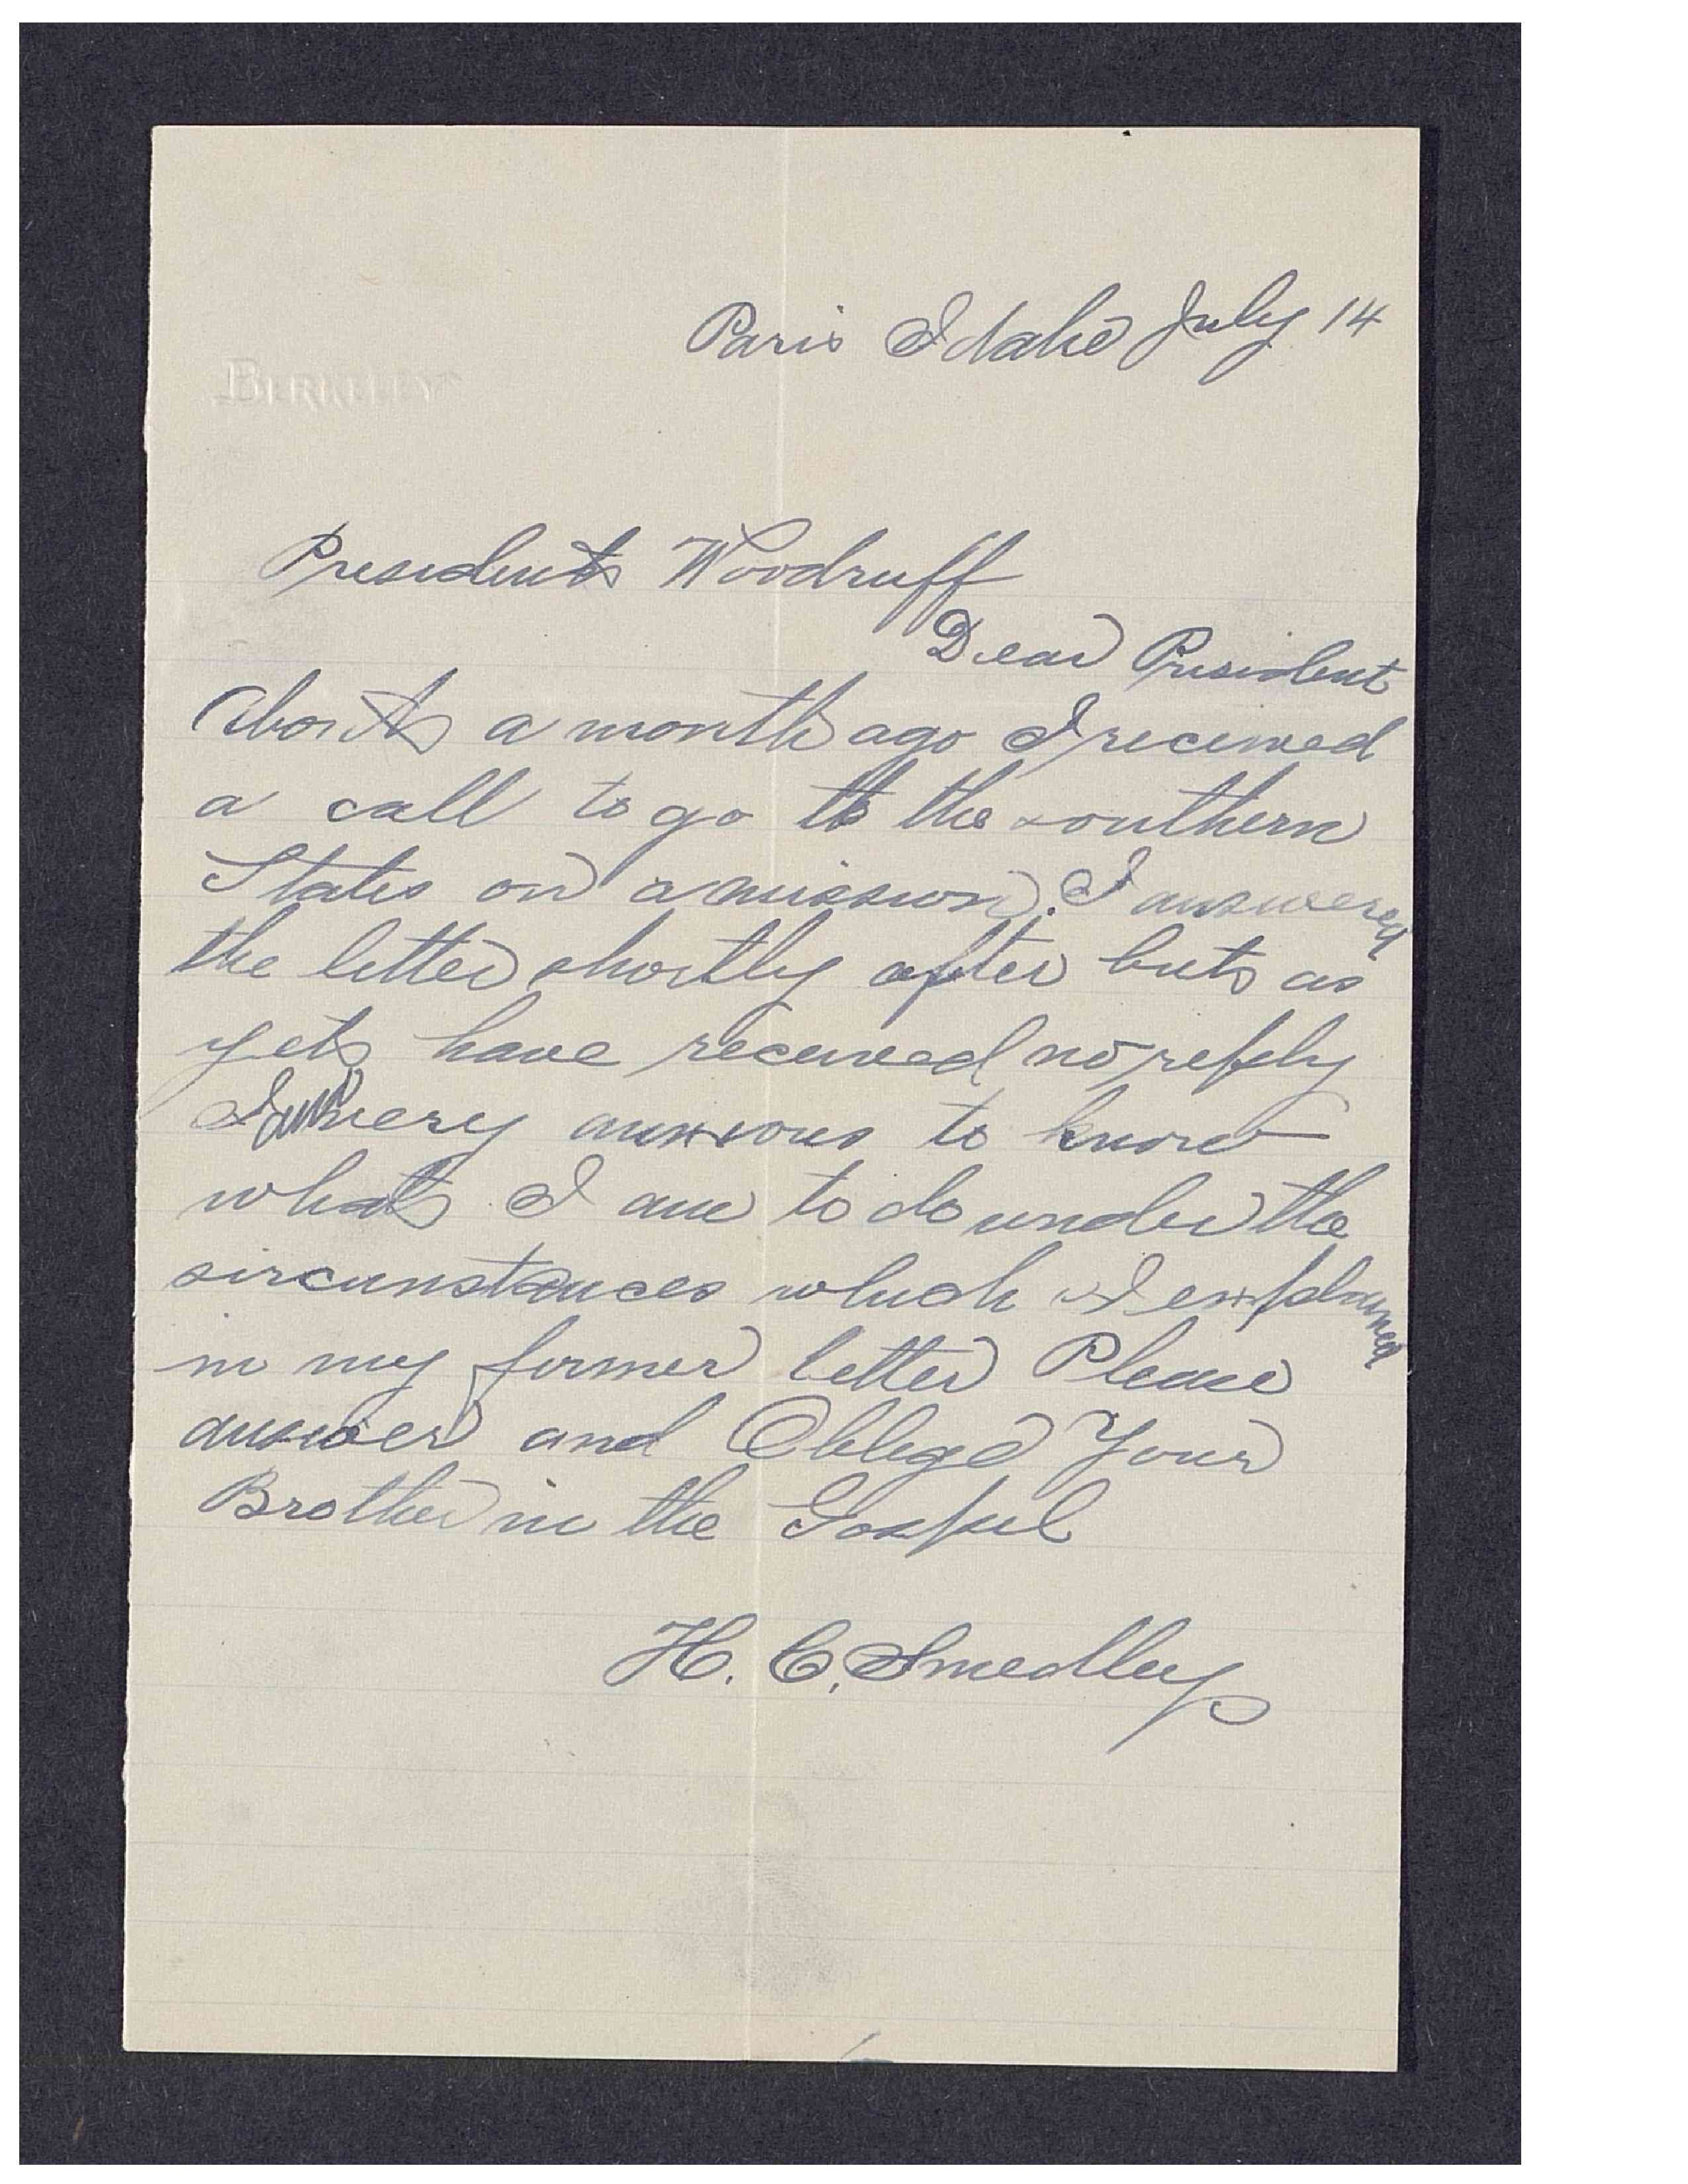 Paris Idaho July 14
BERKELEY
President Woodruff
Dear President
About a month ago I received
a call to go to the southern
States on a mission. I answered
the letter shortly after but as
yet have received no reply
I am very anxious to know
what I am to do under the
sircunstances which I explained
in my former letter Please
answer and Oblige Your
Brother in the Gospel
H. C. Smedley